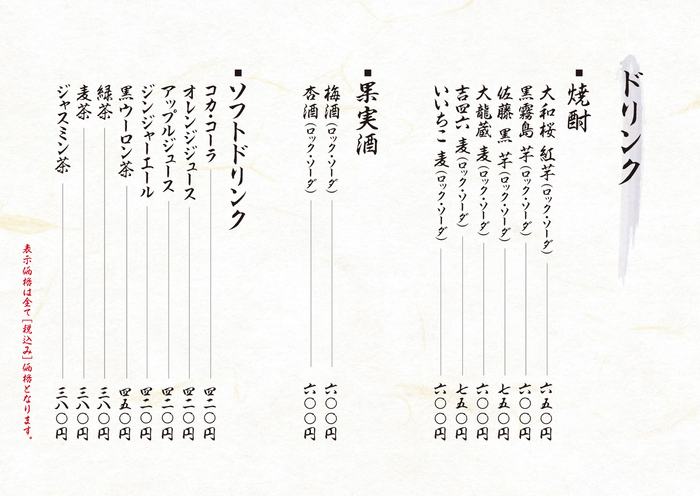 ドリンク
■焼酎
大和桜 紅芋(ロック・ソーダ) 六五〇円
黒霧島 芋(ロック・ソーダ) 六〇〇円
佐藤 黒 芋(ロック・ソーダ) 七五〇円
大龍蔵 麦(ロック・ソーダ) 六〇〇円
吉四六 麦(ロック・ソーダ) 七五〇円
いいちこ 麦(ロック・ソーダ) 六〇〇円
■果実酒
梅酒(ロック・ソーダ) 六〇〇円
杏酒(ロック・ソーダ) 六〇〇円
■ソフトドリンク
コカ・コーラ 四二〇円
オレンジジュース 四二〇円
アップルジュース 四二〇円
ジンジャーエール 四二〇円
黒ウーロン茶 四五〇円
緑茶 三八〇円
麦茶 三八〇円
ジャスミン茶 三八〇円
表示価格は全て[税込み]価格となります。